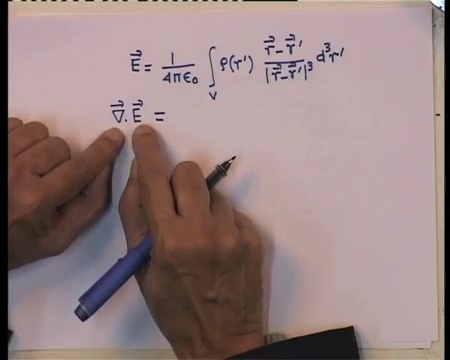 $\vec{E} = \frac{1}{4\pi\epsilon_0} \int_V \rho(r') \frac{\vec{r}-\vec{r}'}{|\vec{r}-\vec{r}'|^3} d^3r'$
$\vec{\nabla}.\vec{E} =$